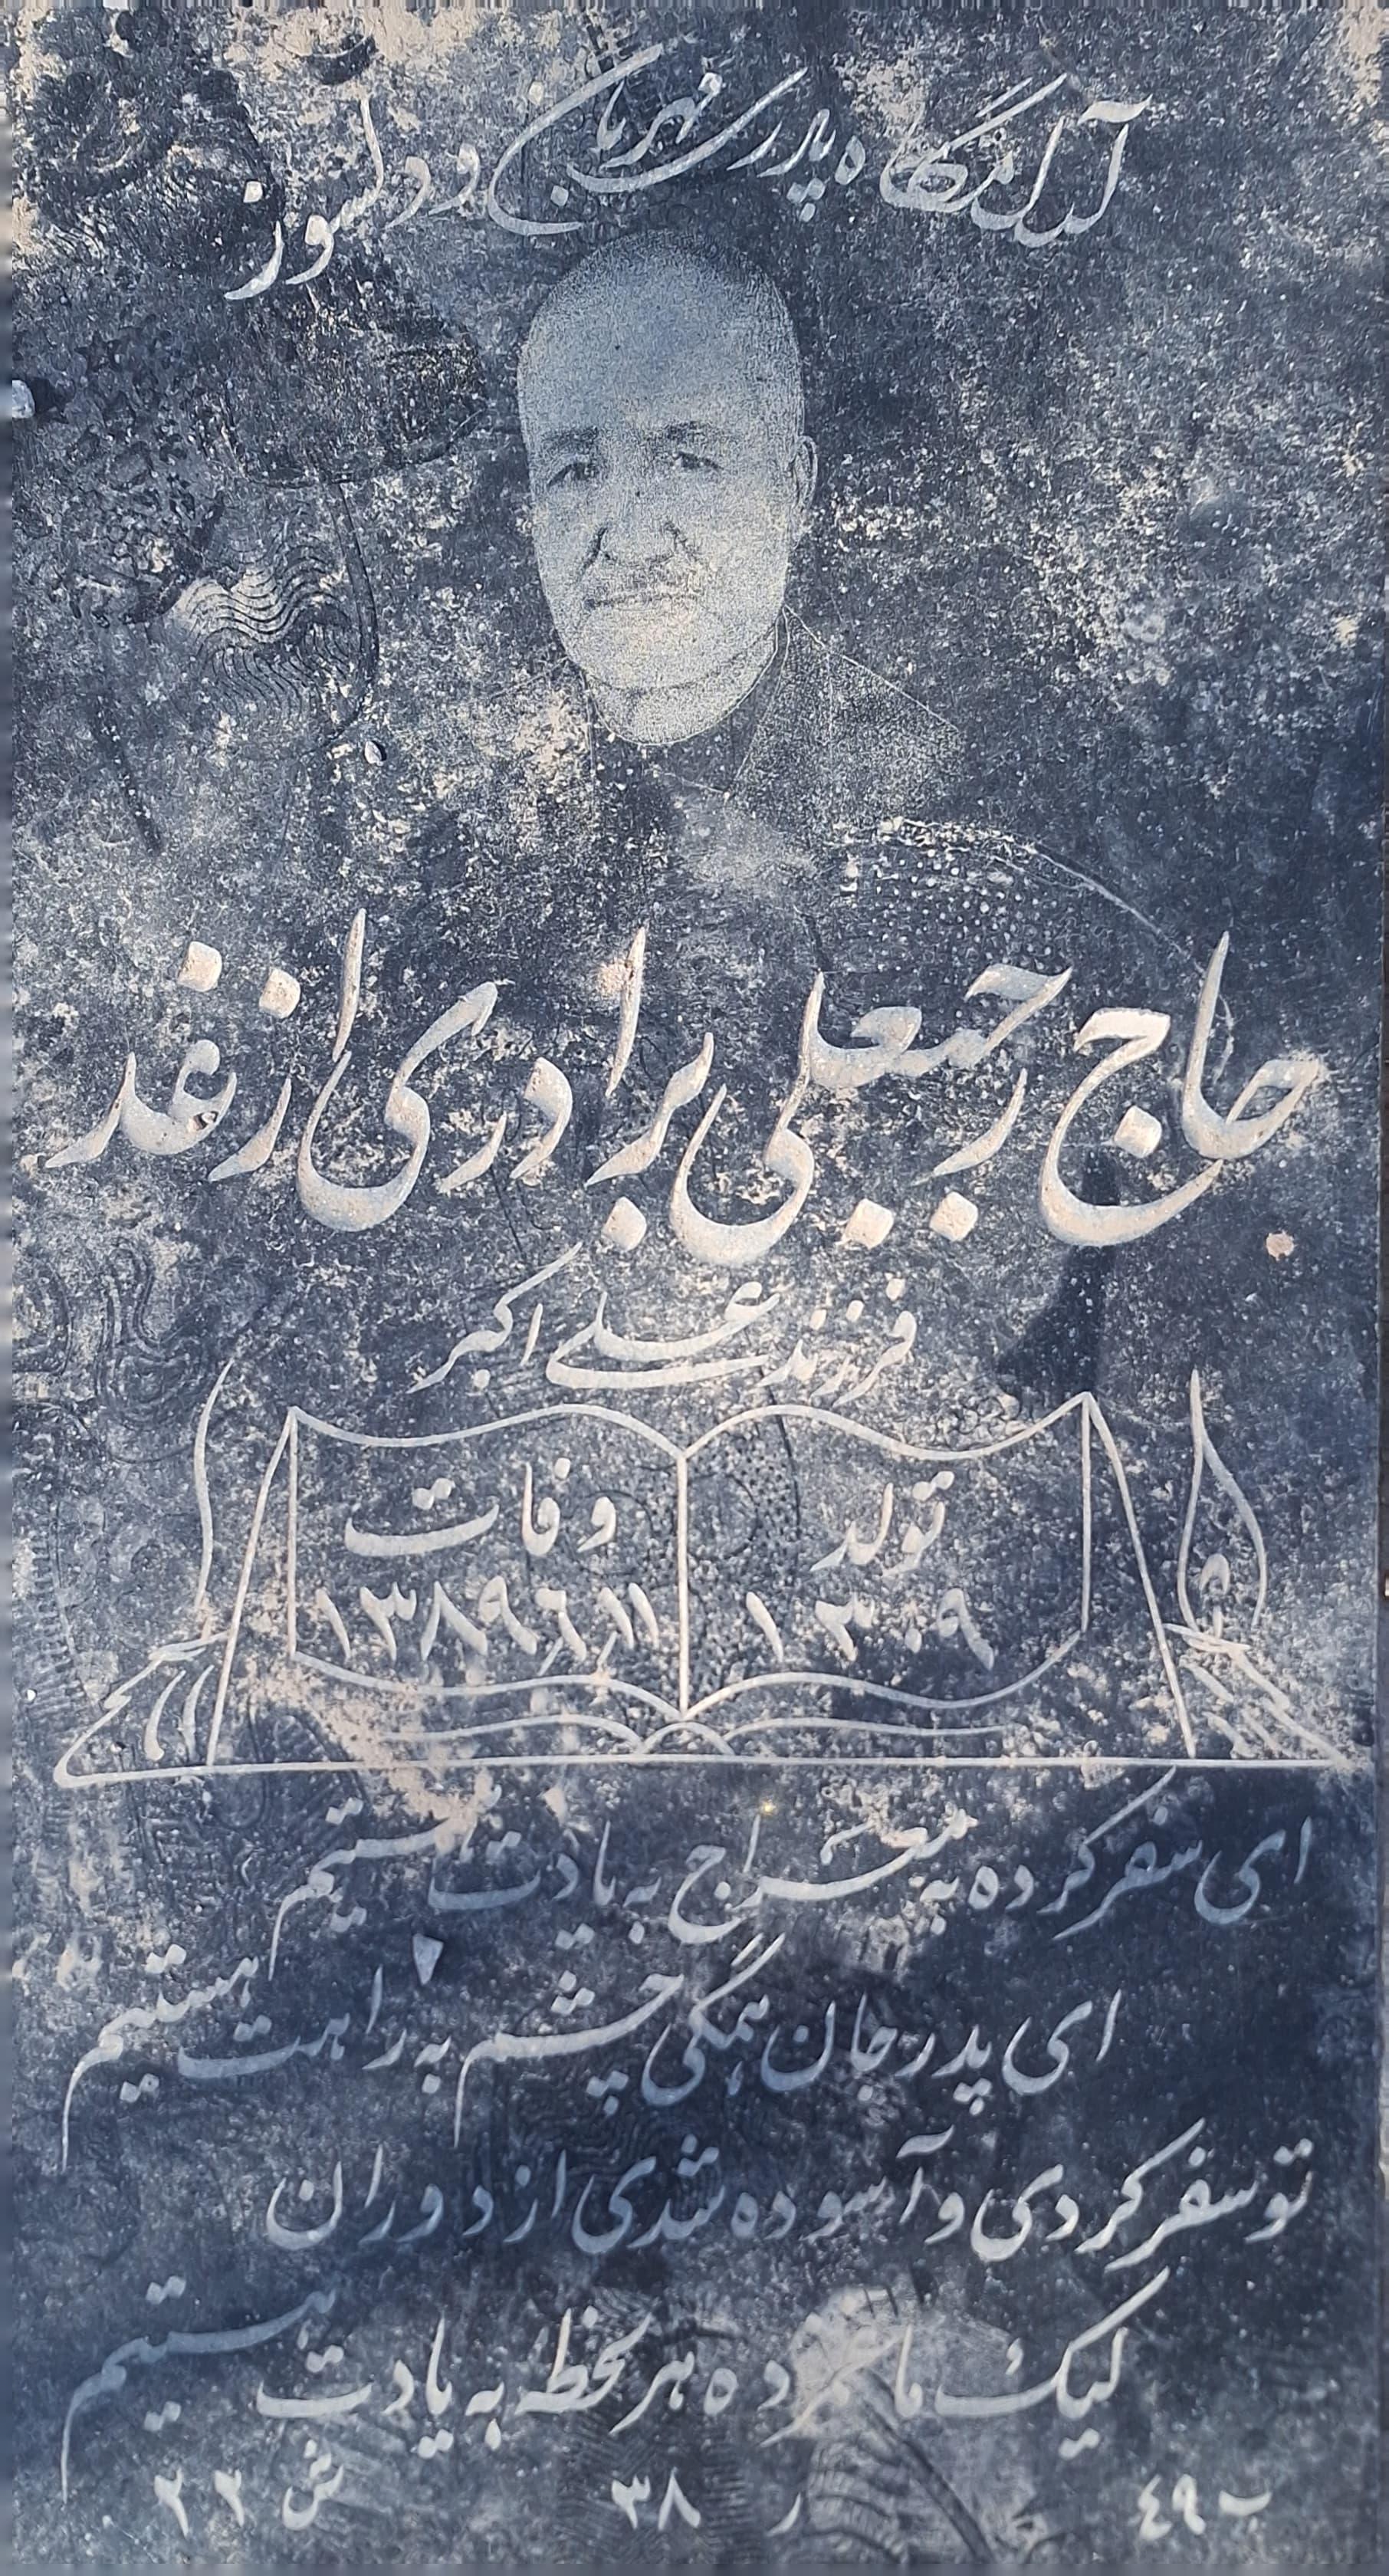 آرامگاه پدر مهربان و دلسوز
حاج رجبعلی برادری ازغد
فرزند علی اکبر
تولد
۱۳۰۹
وفات
۱۳۸۹،۶،۱۱
ای سفر کرده به معراج به یادت هستیم
ای پدر جان همگی چشم به راهت هستیم
تو سفر کردی و آسوده شدی از دوران
لیک ما غمزده هر لحظه به یادت هستیم
ب ٤٩ ر ۳۸ ش ۲۲